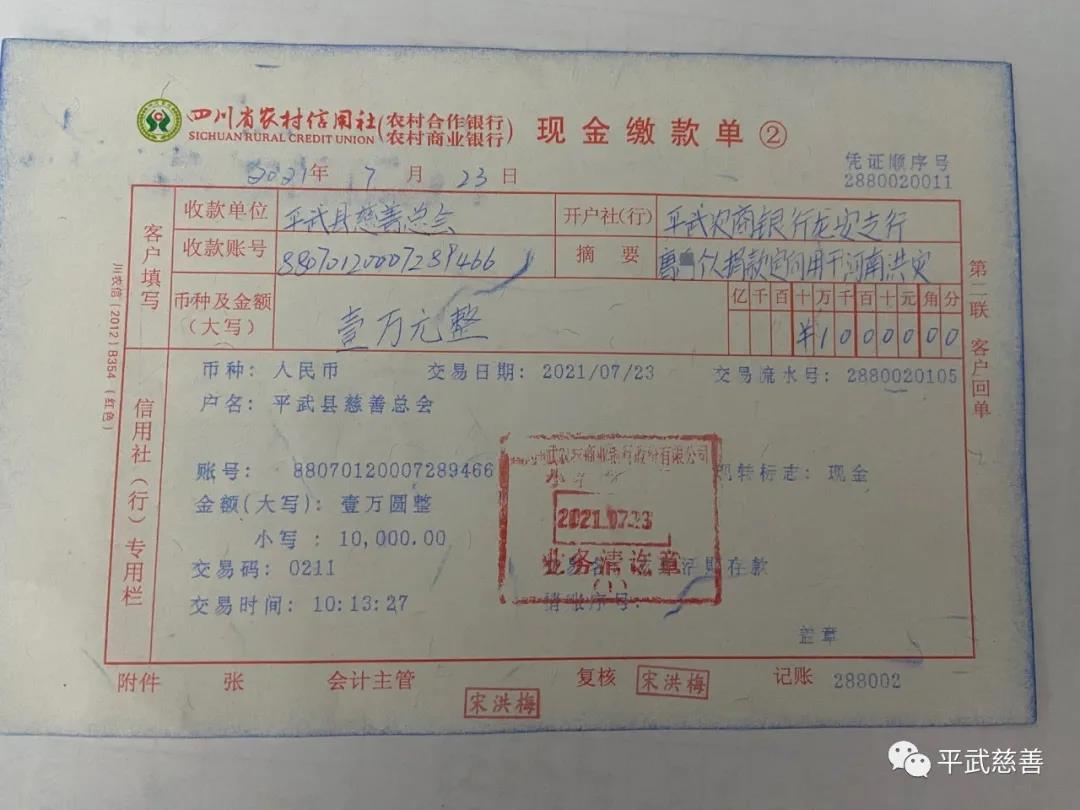 四川省农村信用社(农村合作银行 农村商业银行) 现金缴款单②
SICHUAN RURAL CREDIT UNION
2021年 7 月 23 日
凭证顺序号
2880020011
客户填写
收款单位 平武县慈善总会 开户社(行) 平武农商银行龙安支行
收款账号 88070120007289466 摘要 个人捐款定向用于河南洪灾
币种及金额(大写) 壹万元整
亿千百十万千百十元角分
¥1000000
川农信(2012)B354(红色)
第二联 客户回单
信用社(行)专用栏
币种: 人民币 交易日期: 2021/07/23 交易流水号: 2880020105
户名: 平武县慈善总会
账号: 88070120007289466 现转标志: 现金
金额(大写): 壹万圆整
小写 : 10,000.00
交易码: 0211 活期存款
交易时间: 10:13:27 销账序号:
2021.07.23
业务清讫章
(1)
盖章
附件 张 会计主管 宋洪梅 复核 宋洪梅 记账 288002
平武慈善